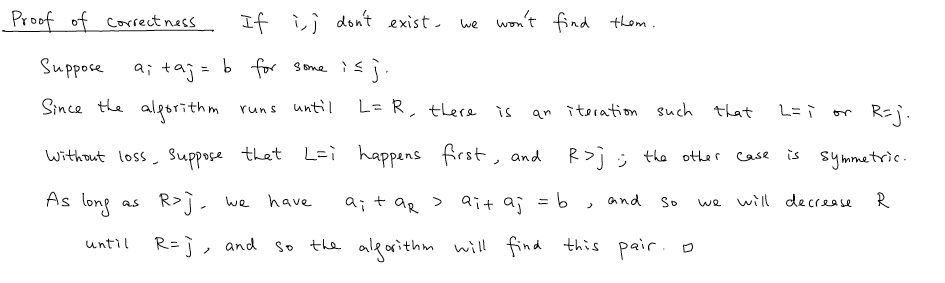 Proof of correctness If i,j don't exist, we won't find them.
Suppose a_i + a_j = b for some i ≤ j.
Since the algorithm runs until L=R, there is an iteration such that L=i or R=j.
Without loss, suppose that L=i happens first, and R>j ; the other case is symmetric.
As long as R>j, we have a_i + a_R > a_i + a_j = b, and so we will decrease R
until R=j, and so the algorithm will find this pair. □